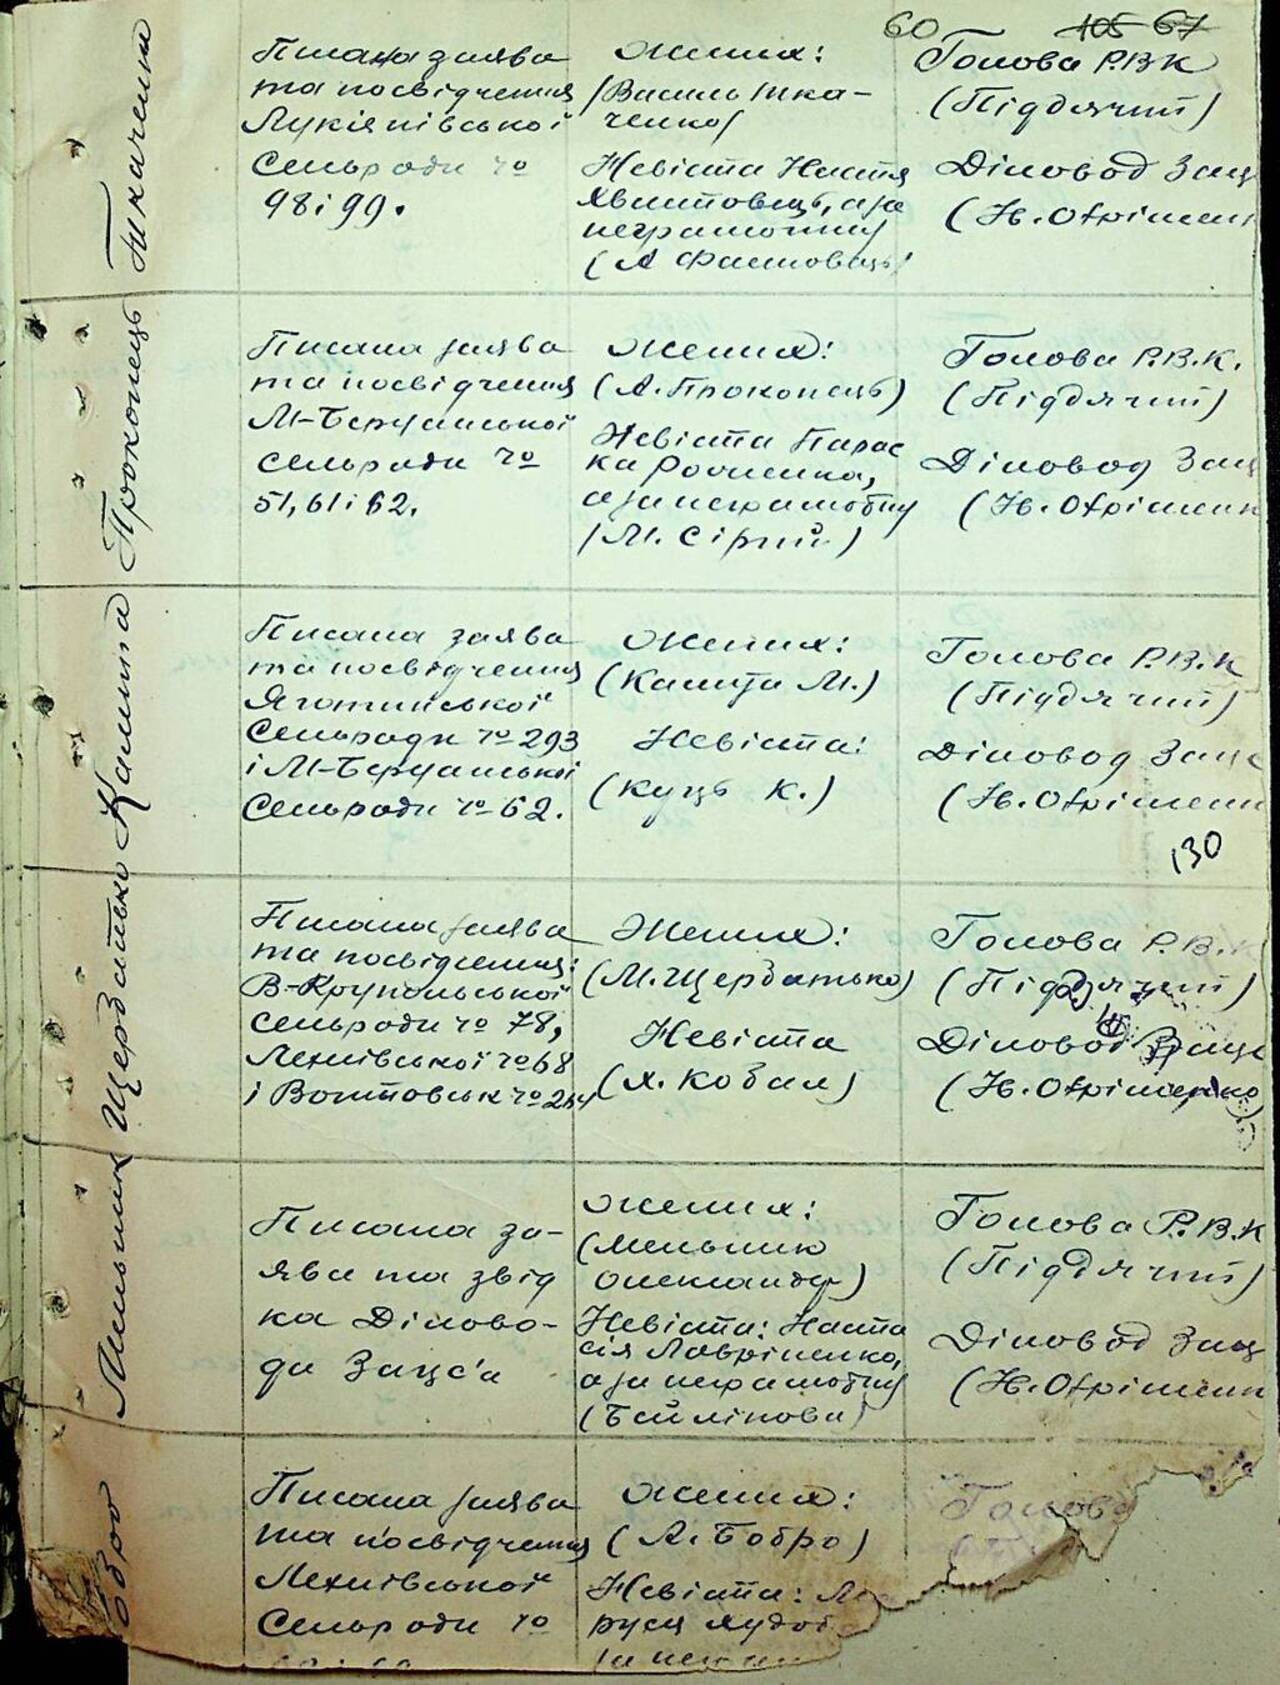 60 105 67
Ткаченки
Писана заява
та посвідчення
Лукіянівської
Сельради №
98 і 99.
Жених:
/Василь Тка-
ченко/
Невіста Настя
Хвастовець, а за
неграмотну
(А Фастовець)
Голова Р.В.К
(Підлячий)
Діловод Заг
(Н. Охрімен
Прокопець
Писана заява
та посвідчення
М-Березанської
сельради №
51, 61 і 62.
Жених:
(А. Прокопець)
Невіста Парас
ка
а за неграмотну
/М. Сірий)
Голова Р.В.К.
(Підлячий)
Діловод Заг
(Н. Охріменк
Калита
Писана заява
та посвідчення
Яготинської
Сельради № 293
і М-Березанської
Сельради № 62.
Жених:
(Калита М.)
Невіста:
(Куць К.)
Голова Р.В.К
(Підлячий)
Діловод Заг
(Н. Охріменк
130
Щербатько
Писана заява
та посвідчення:
В-Крупольської
сельради № 78,
Лехнівської № 68
і Войтовськ № 254
Жених:
(М. Щербатько)
Невіста
(Х. Кобал)
Голова Р.В.К
(Підлячий)
Діловод
(Н. Охріменко
Мельник
Писана за-
ява та звід
ка Діллово-
да
Жених:
(Мельник
Олександр)
Невіста: Наста
сія Лавріненко,
а за неграмотну
(Бейлінова)
Голова Р.В.К
(Підлячий)
Діловод Заг
(Н. Охріменк
обро
Писана заява
та посвідчення
Лехнівської
Сельради №
Жених:
(А. Бобро)
Невіста: М
руся
Голова